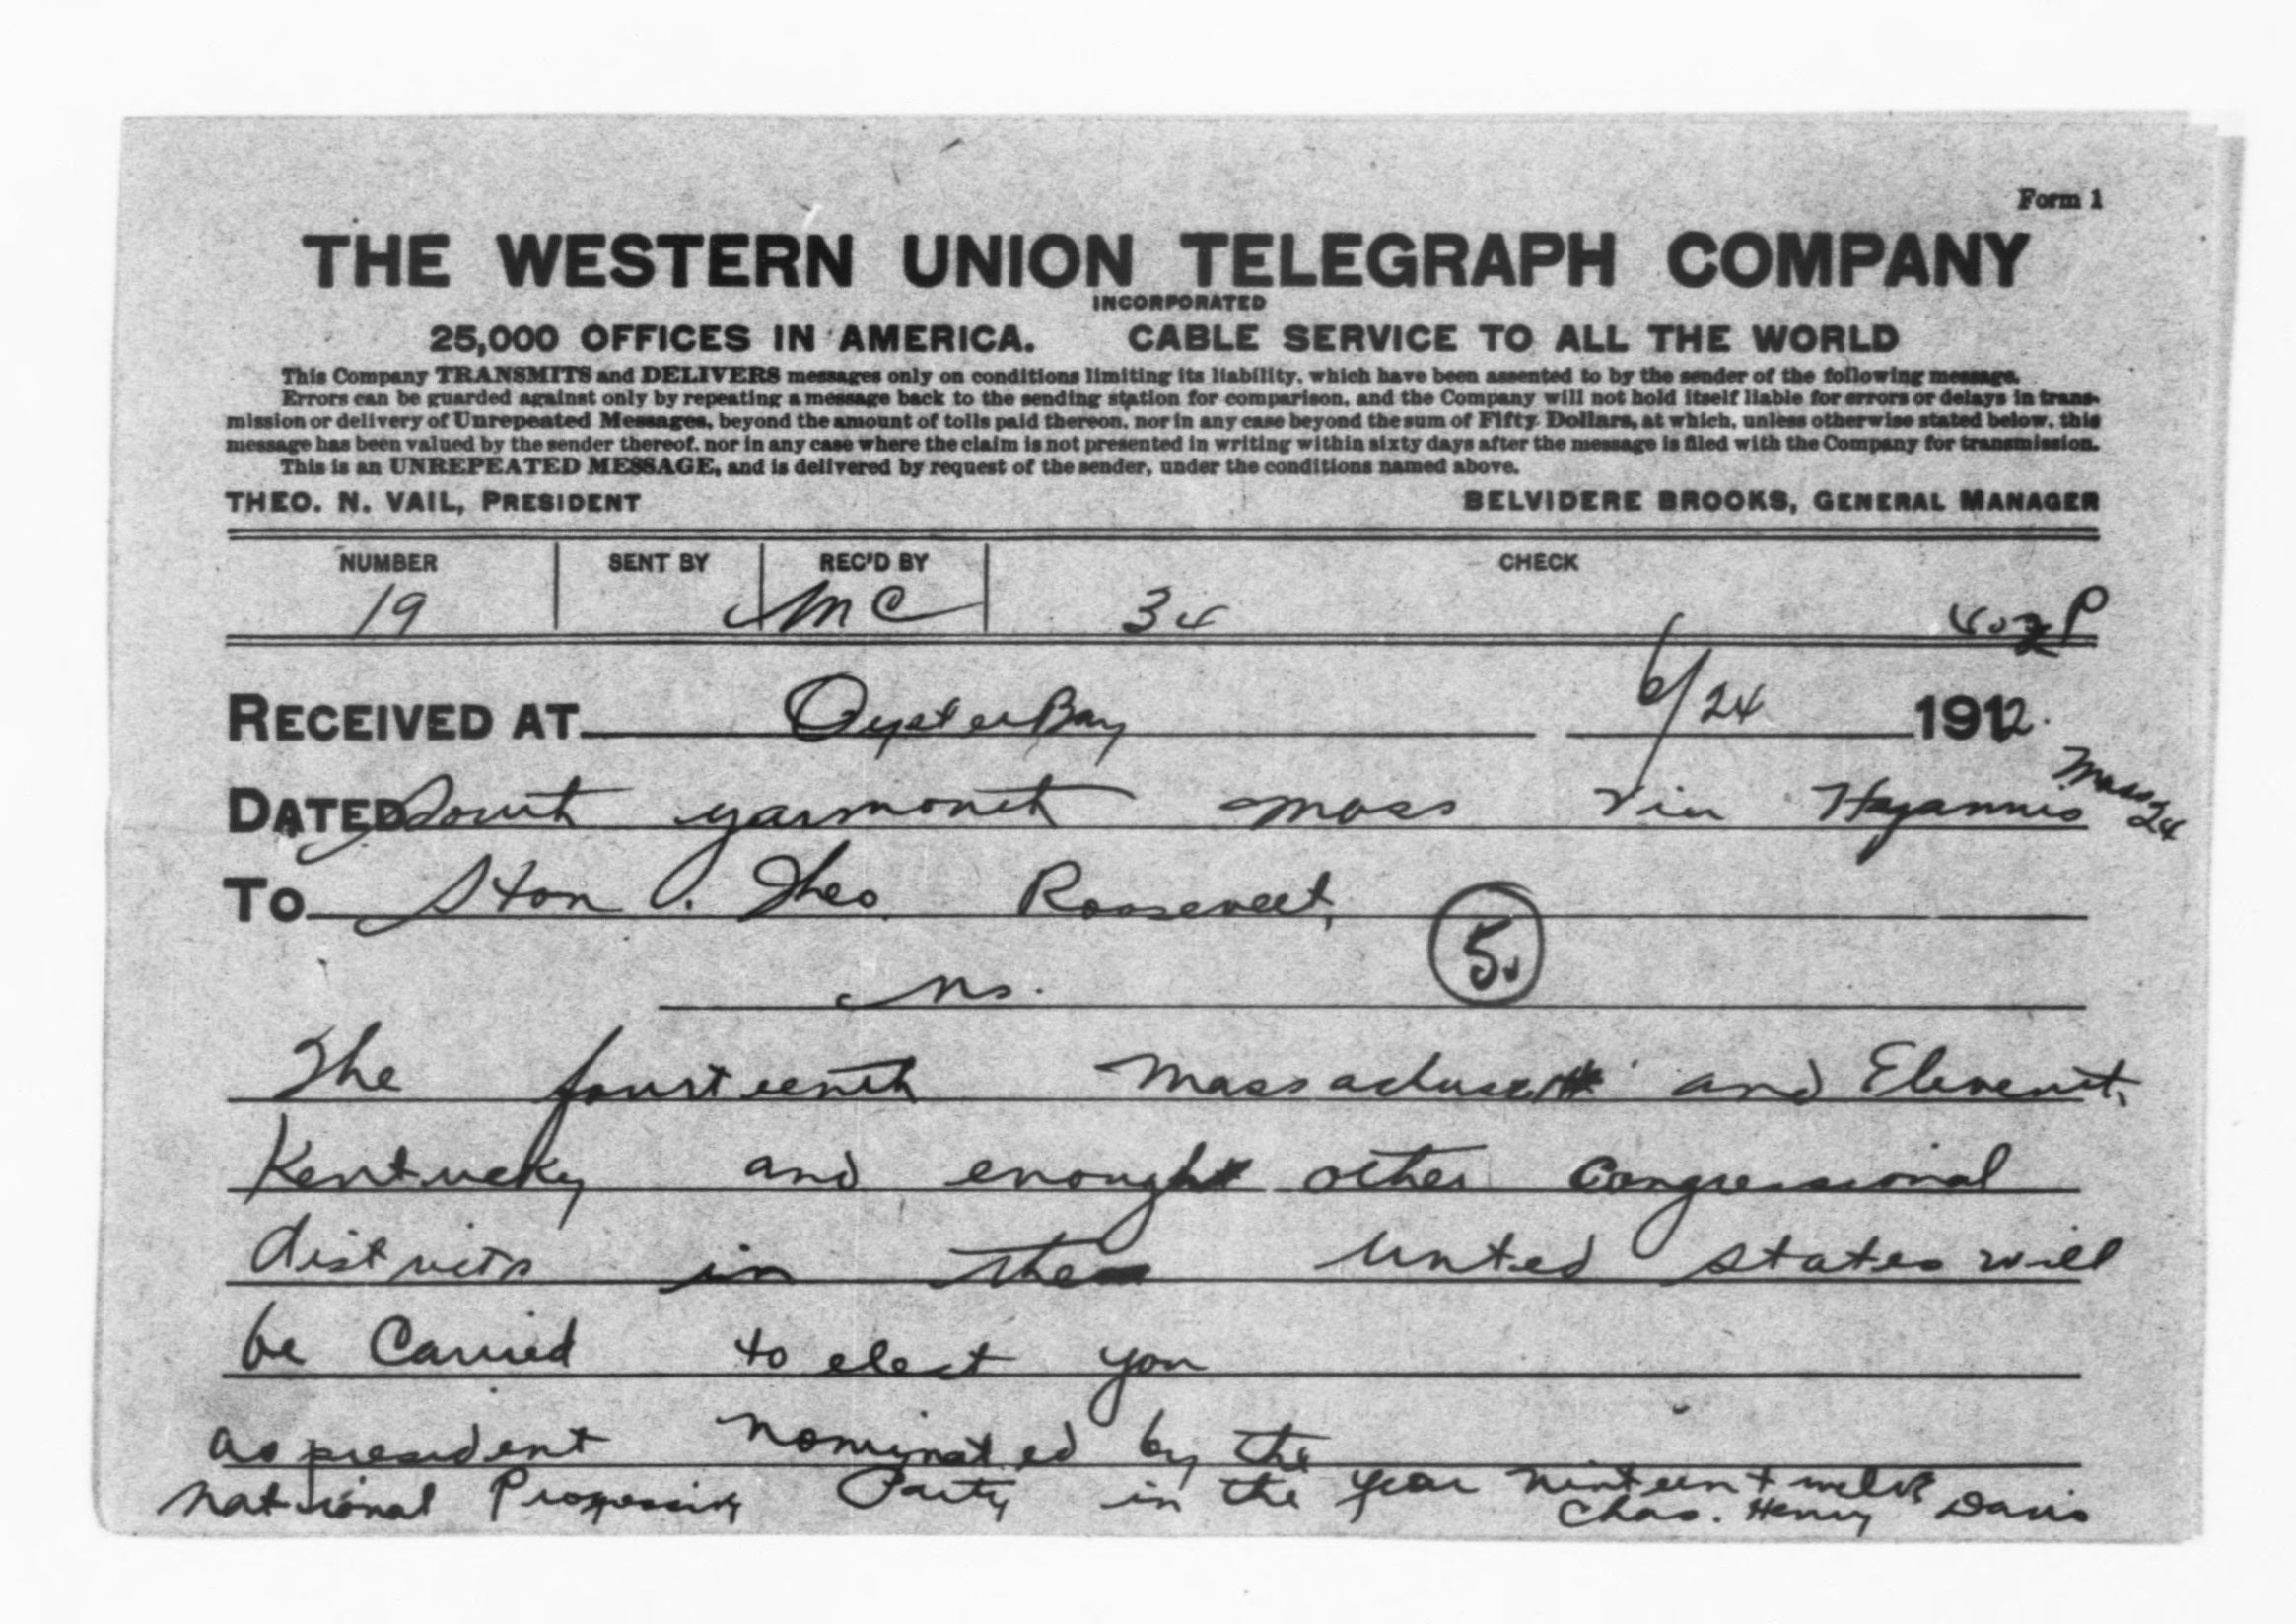 Form 1
THE WESTERN UNION TELEGRAPH COMPANY
INCORPORATED
25,000 OFFICES IN AMERICA. CABLE SERVICE TO ALL THE WORLD
This Company TRANSMITS and DELIVERS messages only on conditions limiting its liability, which have been assented to by the sender of the following message.
Errors can be guarded against only by repeating a message back to the sending station for comparison, and the Company will not hold itself liable for errors or delays in trans-
mission or delivery of Unrepeated Messages, beyond the amount of tolls paid thereon, nor in any case beyond the sum of Fifty Dollars, at which, unless otherwise stated below, this
message has been valued by the sender thereof, nor in any case where the claim is not presented in writing within sixty days after the message is filed with the Company for transmission.
This is an UNREPEATED MESSAGE, and is delivered by request of the sender, under the conditions named above.
THEO. N. VAIL, PRESIDENT BELVIDERE BROOKS, GENERAL MANAGER
NUMBER SENT BY REC'D BY CHECK
19 MC 34 P
RECEIVED AT Oyster Bay 6/24 1912.
DATED South yarmouth mass via Hyannis Mass 24
TO Hon. Theo. Roosevelt,
5.
The fourteenth Massachusett and Eleventh
Kentucky and enough other Congressional
districts in the United States will
be Carried to elect you
as president nominated by the
national Progressive Party in the year nineteen twelve
Chas. Henry Davis